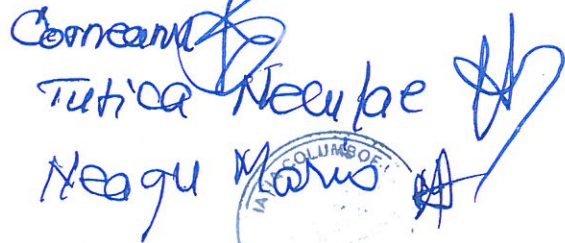 Corneanu
Tutica Neculae
Neagu Marius
IAȚIA COLUMBOF